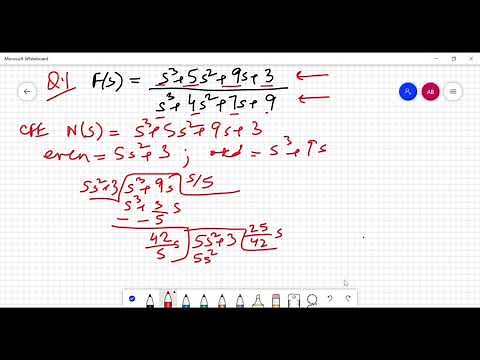 Microsoft Whiteboard
Q.1 F(s) = s³+5s²+9s+3 ←
s³+4s²+7s+9 ←
CFE N(s) = s³+5s²+9s+3
even = 5s²+3 ; odd = s³+9s
5s²+3 s³+9s s/5
s³+ 3/5 s
- -
42/5 s 5s²+3 25/42 s
5s²
AB